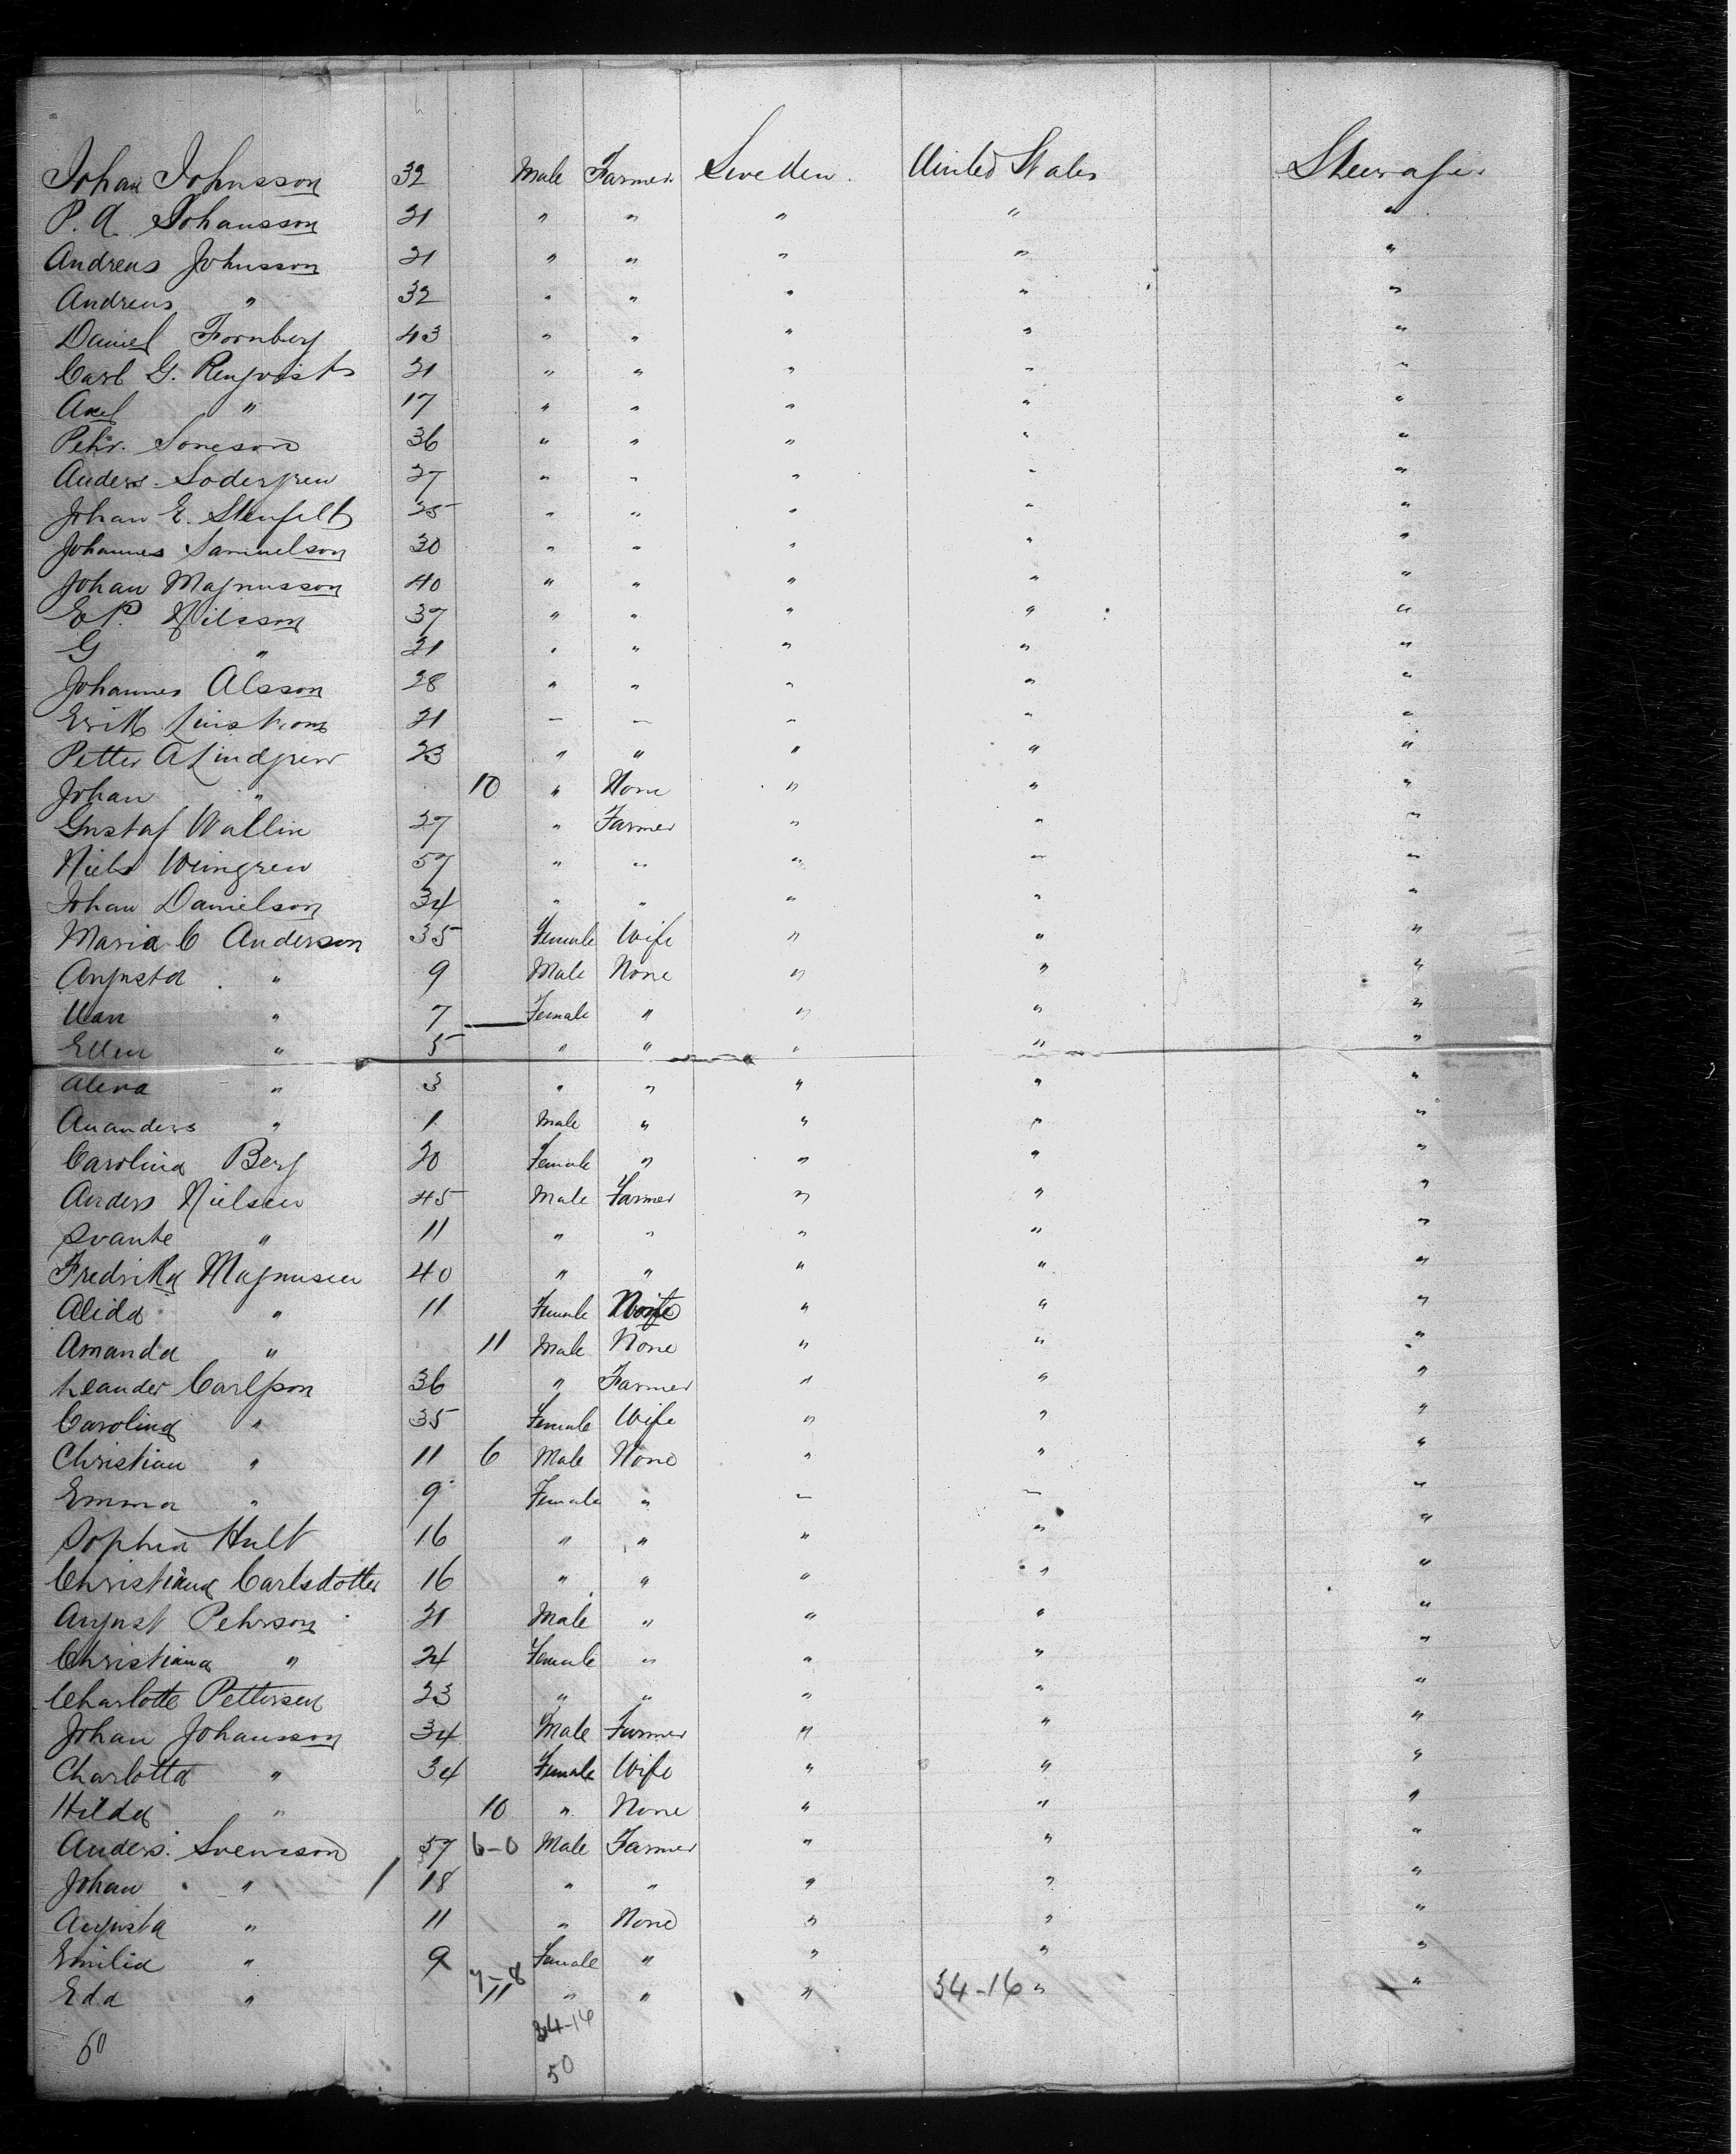 Johan Johnsson 32 Male Farmer Sweden. United States Steerage
P. A. Johansson 21 " " " " "
Andreas Johnsson 21 " " " " "
Andreas " 32 " " " " "
Daniel Fornberg 43 " " " " "
Carl G. Renqvist 21 " " " " "
Axel " 17 " " " " "
Pehr. Soneson 36 " " " " "
Anders Sodergren 27 " " " " "
Johan E. Stenfelt 25 " " " " "
Johannes Samuelson 30 " " " " "
Johan Magnusson 40 " " " " "
E P. Nilsson 37 " " " " "
G " 21 " " " " "
Johannes Olsson 28 " " " " "
Erik Linstrom 21 " " " " "
Petter A Lindgren 23 " " " " "
Johan " 10 " None " " "
Gustaf Wallin 27 " Farmer " " "
Niels Wengren 57 " " " " "
Johan Danielson 34 " " " " "
Maria C Anderson 35 Female Wife " " "
Augusta " 9 Male None " " "
" 7 — Female " " " "
Ellen " 5 " " " " "
Alena " 3 " " " " "
Auanders " 1 Male " " " "
Carolina Berg 20 Female " " " "
Anders Nielsen 45 Male Farmer " " "
Svante " 11 " " " " "
Fredrika Magnusen 40 " " " " "
Alida " 11 Female " " "
Amanda " 11 Male None " " "
Leander Carlson 36 " Farmer " " "
Carolina " 35 Female Wife " " "
Christian " 11 6 Male None " " "
Emma " 9 Female " " " "
Sophia Hult 16 " " " " "
Christiana Carlsdotter 16 " " " " "
August Pehrson 21 Male " " " "
Christiana " 24 Female " " " "
Charlotte Pettersen 23 " " " " "
Johan Johansson 34 Male Farmer " " "
Charlotta " 34 Female Wife " " "
Hilda " 10 " None " " "
Anders Svensson 57 6-0 Male Farmer " " "
Johan " 18 " " " " "
Augusta " 11 " None " " "
Emilia " 9 Female " " " "
Eda " 7-8 11 " " " 34-16 " "
34-16
50 50